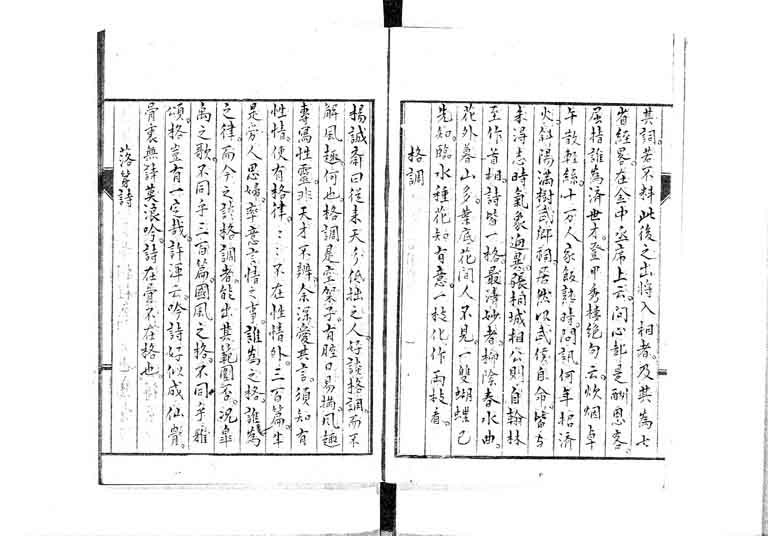 其詞若不料此後之出將入相者及其為七
省經畧在金中丞席上云問心都是酬恩客
屈指誰為濟世才登甲秀樓絕句云炊烟卓
午散輕絲十万人家飯熟時問訊何年招濟
火斜陽滿樹武鄉祠居然以武侯自命皆與
未得志時氣象逈異張桐城相公則自翰林
至作首相詩皆一格最清妙者柳陰春水曲
花外暮山多葉底花間人不見一雙蝴蝶已
先知臨水種花知有意一枝化作兩枝看
格調
楊誠齋曰從來天分低拙之人好談格調而不
解風趣何也格調是空架子有腔口易描風趣
專寫性靈非天才不辨余深愛其言須知有
性情便有格律〻〻不在性情外三百篇半
是勞人思婦率意言情之事誰為之格誰為
之律而今之談格調者能出其範圍否況皐
禹之歌不同乎三百篇國風之格不同乎雅
頌格豈有一定哉許渾云吟詩好似成仙骨
骨裏無詩莫浪吟詩在骨不在格也
落筆詩